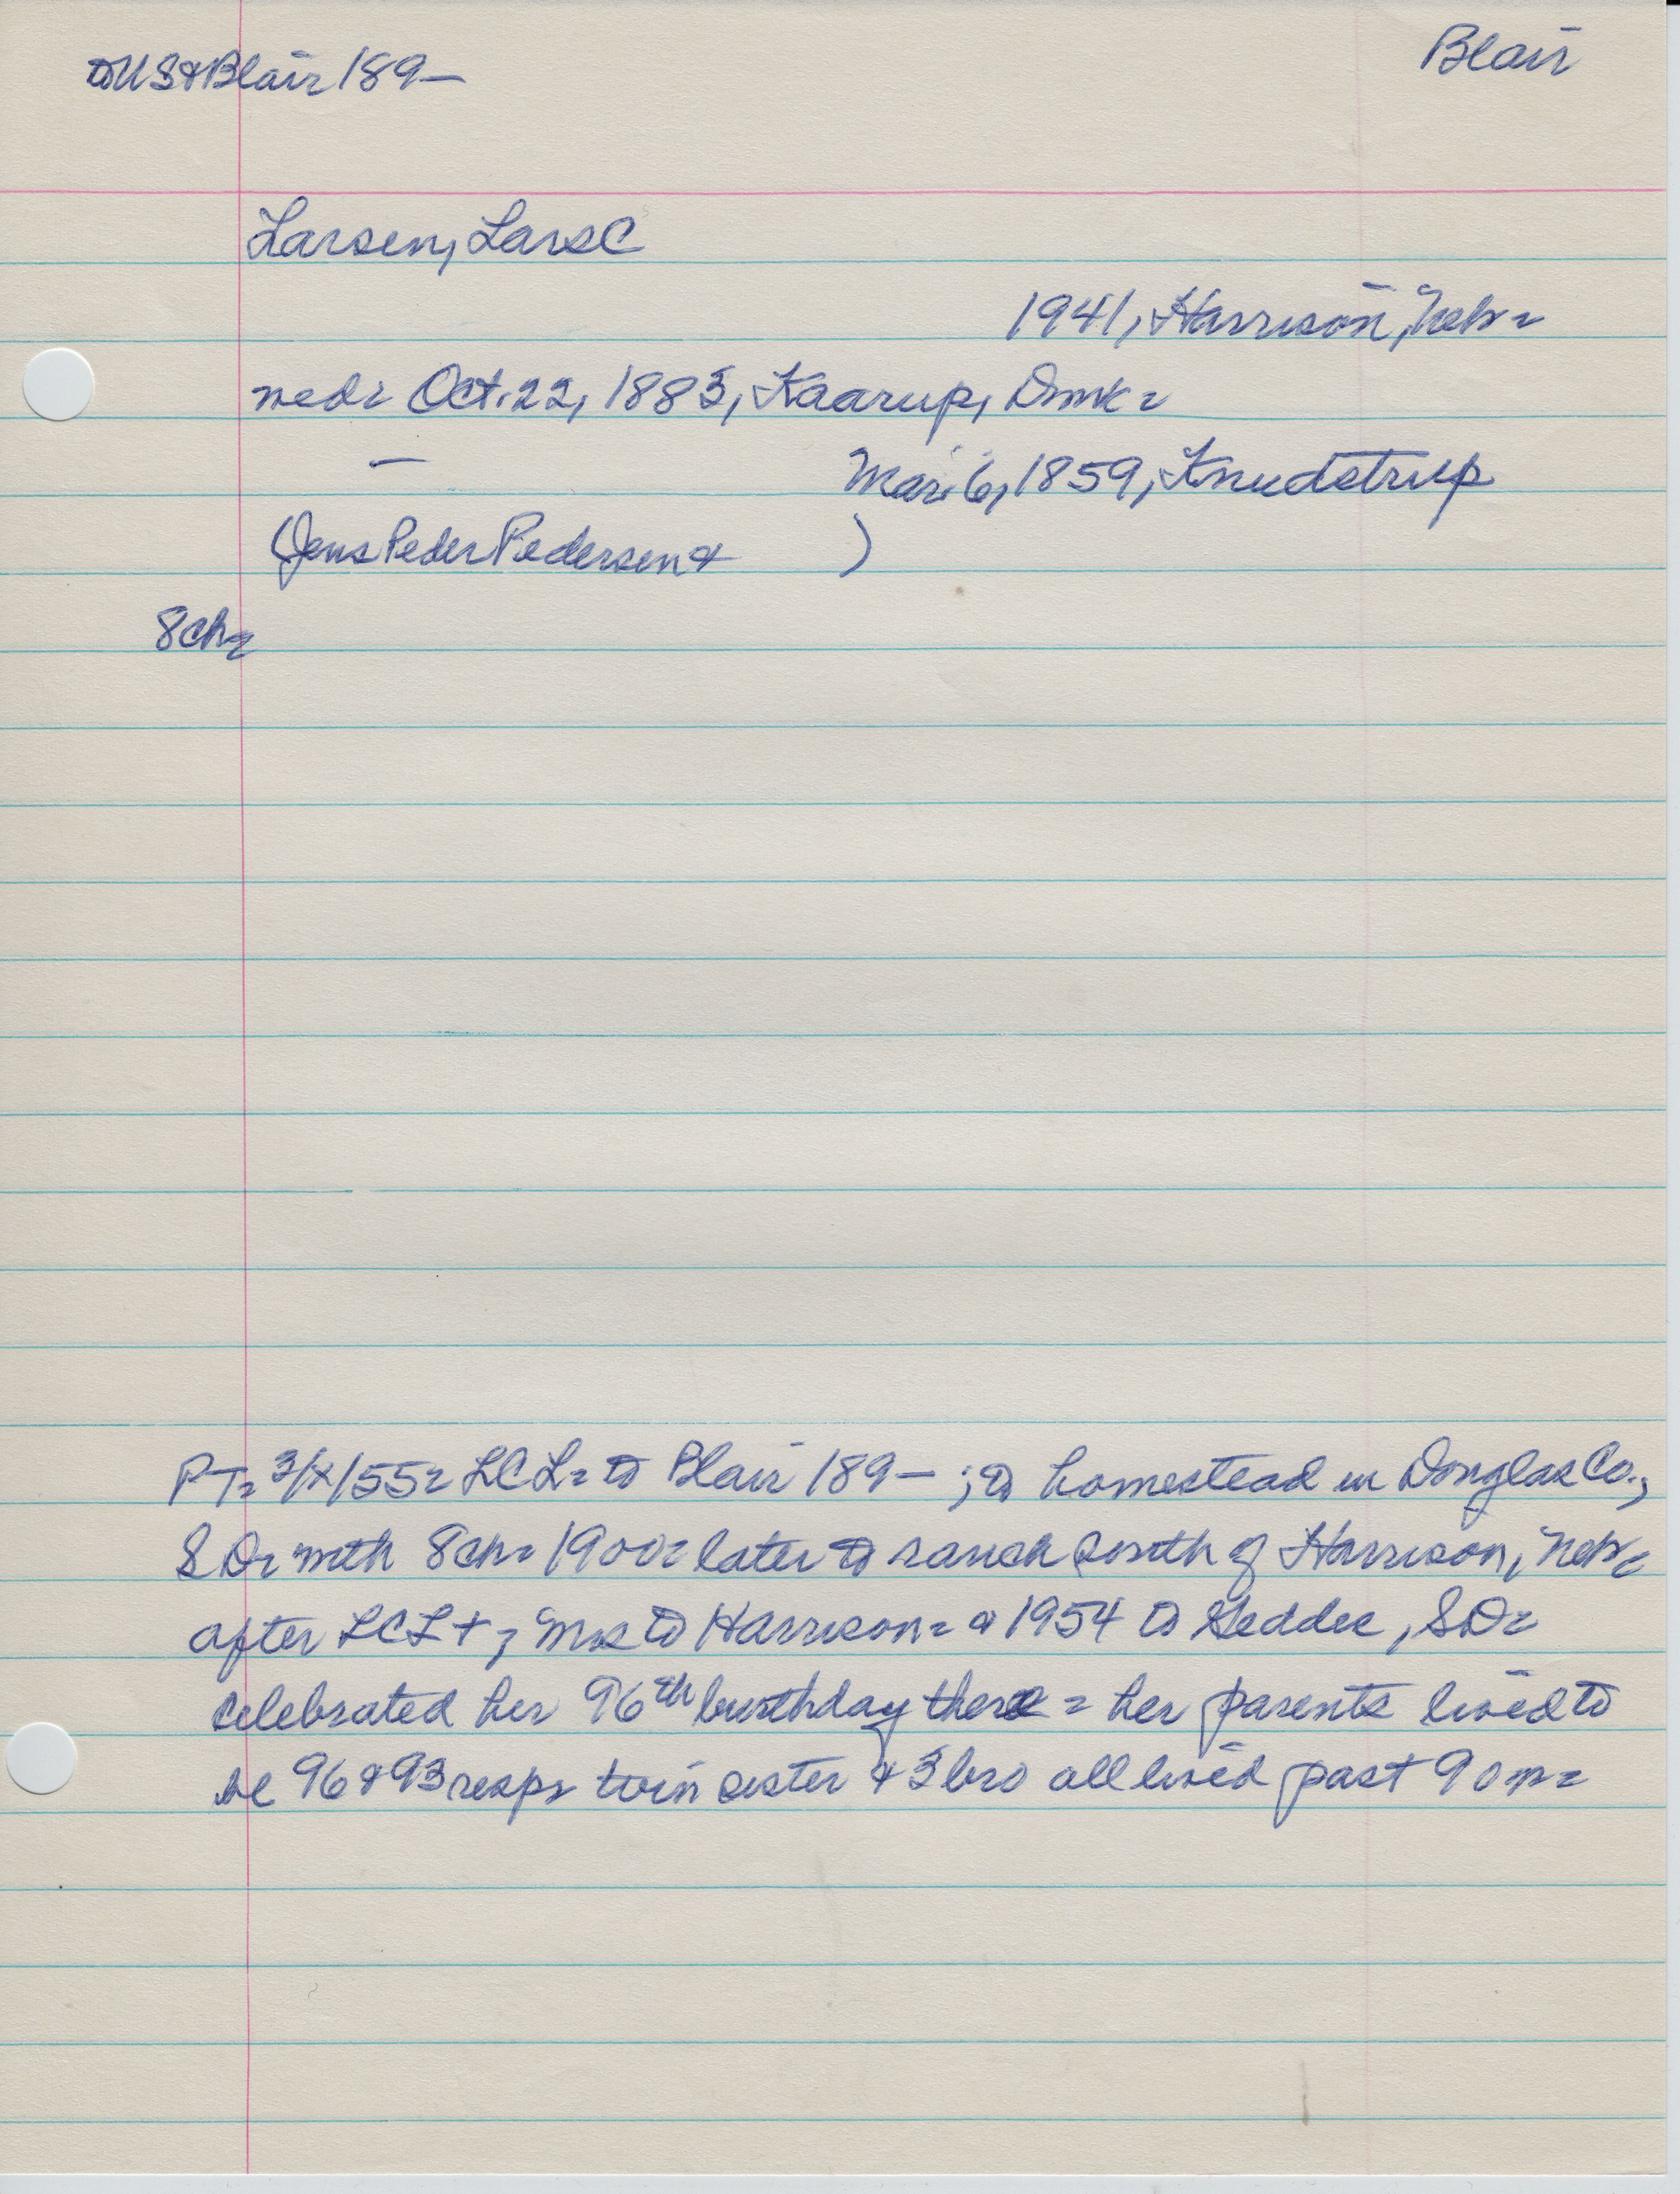 to US & Blair 189–
Blair
Larsen, Lars C
1941, Harrison, Nebr=
wed= Oct. 22, 1883, Kaarup, Dmk=
— Mar. 6, 1859, Knudstrup
(Jens Peder Pedersen & )
8 ch=
PT= 3/X/55= LCL= to Blair 189– ; to homestead in Douglas Co.,
SD= with 8 ch= 1900= later to ranch south of Harrison, Nebr=
after LCL+, Mrs to Harrison= & 1954 to Geddes, SD=
celebrated her 96th birthday there = her parents lived to
be 96 & 93 resp= twin sister & 3 bro all lived past 90